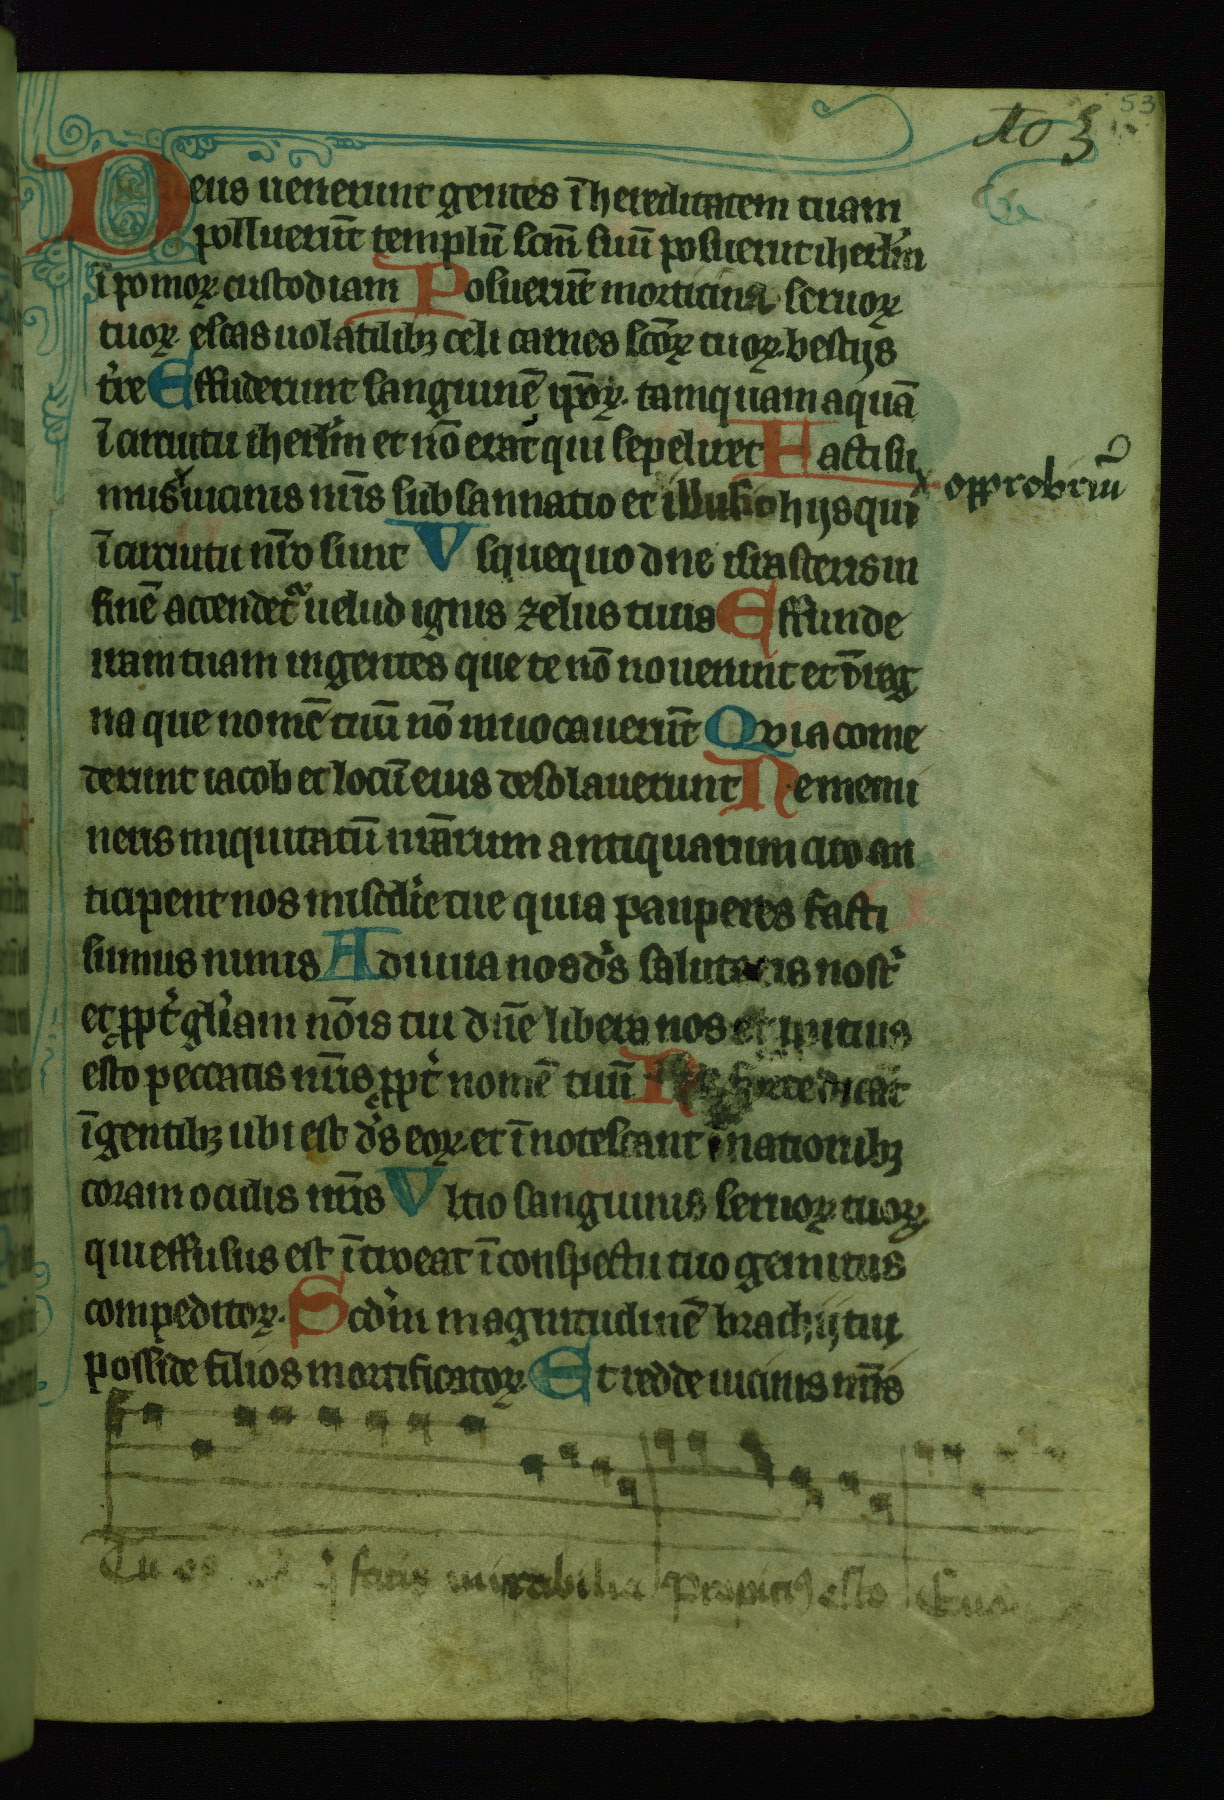 53
to 3
Deus uenerunt gentes ī hereditatem tuam
polluerūt templū scm̄ tuū posuerūt iherl̄m
ī pomoꝝ custodiam Posuerūt morticina seruoꝝ
tuoꝝ escas uolatilibꝫ celi carnes sc̄oꝝ tuoꝝ bestijs
tr̄e Effuderunt sanguinē ip̄oꝝ tamquam aquā
ī circuitu iherl̄m et nō erat qui sepeliret Facti su
mus uicinis nr̄is subsannatio et illusio hijs qui
x opprobriū
ī circuitu nr̄o sunt Vsquequo dn̄e irasceris in
finē accendet᷑ uelud ignis zelus tuus Effunde
iram tuam in gentes que te nō nouerunt et ī reg
na que nomē tuū nō inuocauerūt Quia come
derunt iacob et locū eius desolauerunt Ne memi
neris iniquitatū nr̄arum antiquarum cito an
ticipent nos misc̄die tue quia pauperes facti
sumus nimis Adiuua nos ds̄ salutaris nost̄
et ꝓpt̄ gl̄iam nōis tui dn̄e libera nos et ꝓpitius
esto peccatis nr̄is ꝓpt̄ nomē tuū Ne forte dicāt
ī gentibꝫ ubi est ds̄ eoꝝ et īnotescant ī nationibꝫ
coram oculis nr̄is Vltio sanguinis seruoꝝ tuoꝝ
qui effusus est ītroeat ī conspectu tuo gemitus
compeditoꝝ Scd̄m magnitudinē brachij tui
posside filios mortificatoꝝ Et redde uicinis nr̄is
Tu es facis mirabilia Propiciꝰ esto Euo